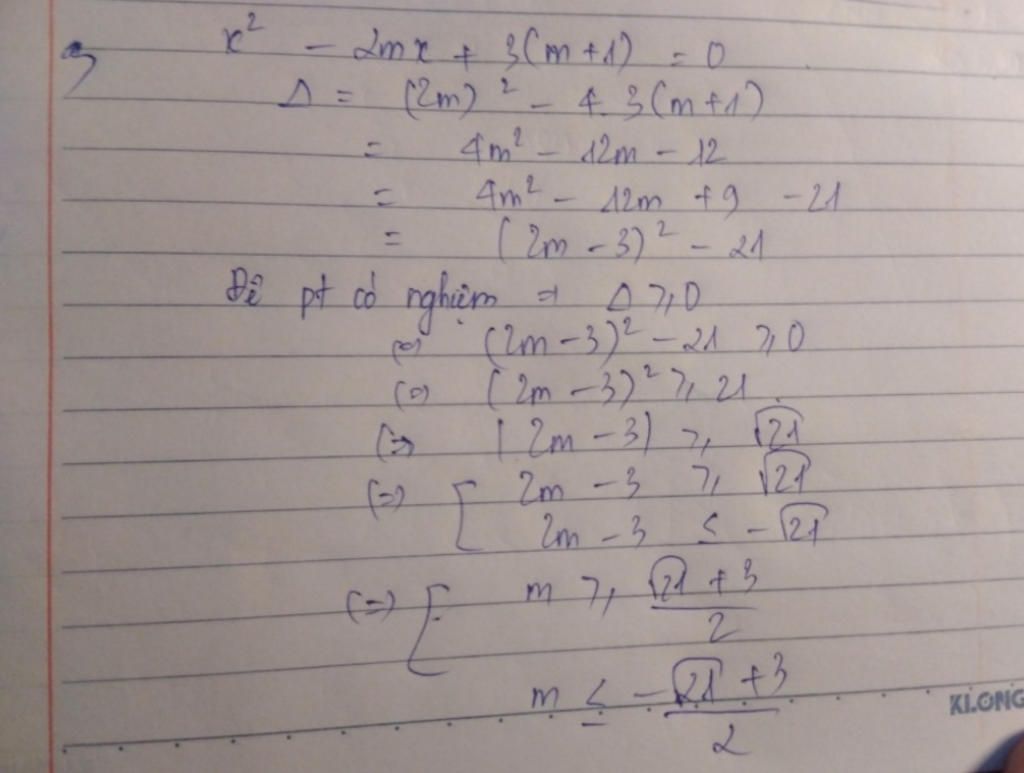 a) x² - 2mx + 3(m+1) = 0
Δ = (2m)² - 4.3(m+1)
= 4m² - 12m - 12
= 4m² - 12m + 9 - 21
= (2m - 3)² - 21
Để pt có nghiệm => Δ ≥ 0
(=) (2m - 3)² - 21 ≥ 0
(=) (2m - 3)² ≥ 21
(=) |2m - 3| ≥ √21
(=) [ 2m - 3 ≥ √21
2m - 3 ≤ - √21
(=) [ m ≥ (√21 + 3)/2
m ≤ (-√21 + 3)/2
KLONG